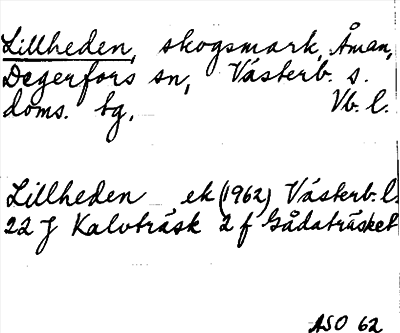 Lillheden, skogsmark, Åman,
Degerfors sn, Västerb. s.
doms. bg, Vb. l.
Lillheden ek (1962) Västerb. l.
22 J Kalvträsk 2 f Gådaträsket
ASO 62